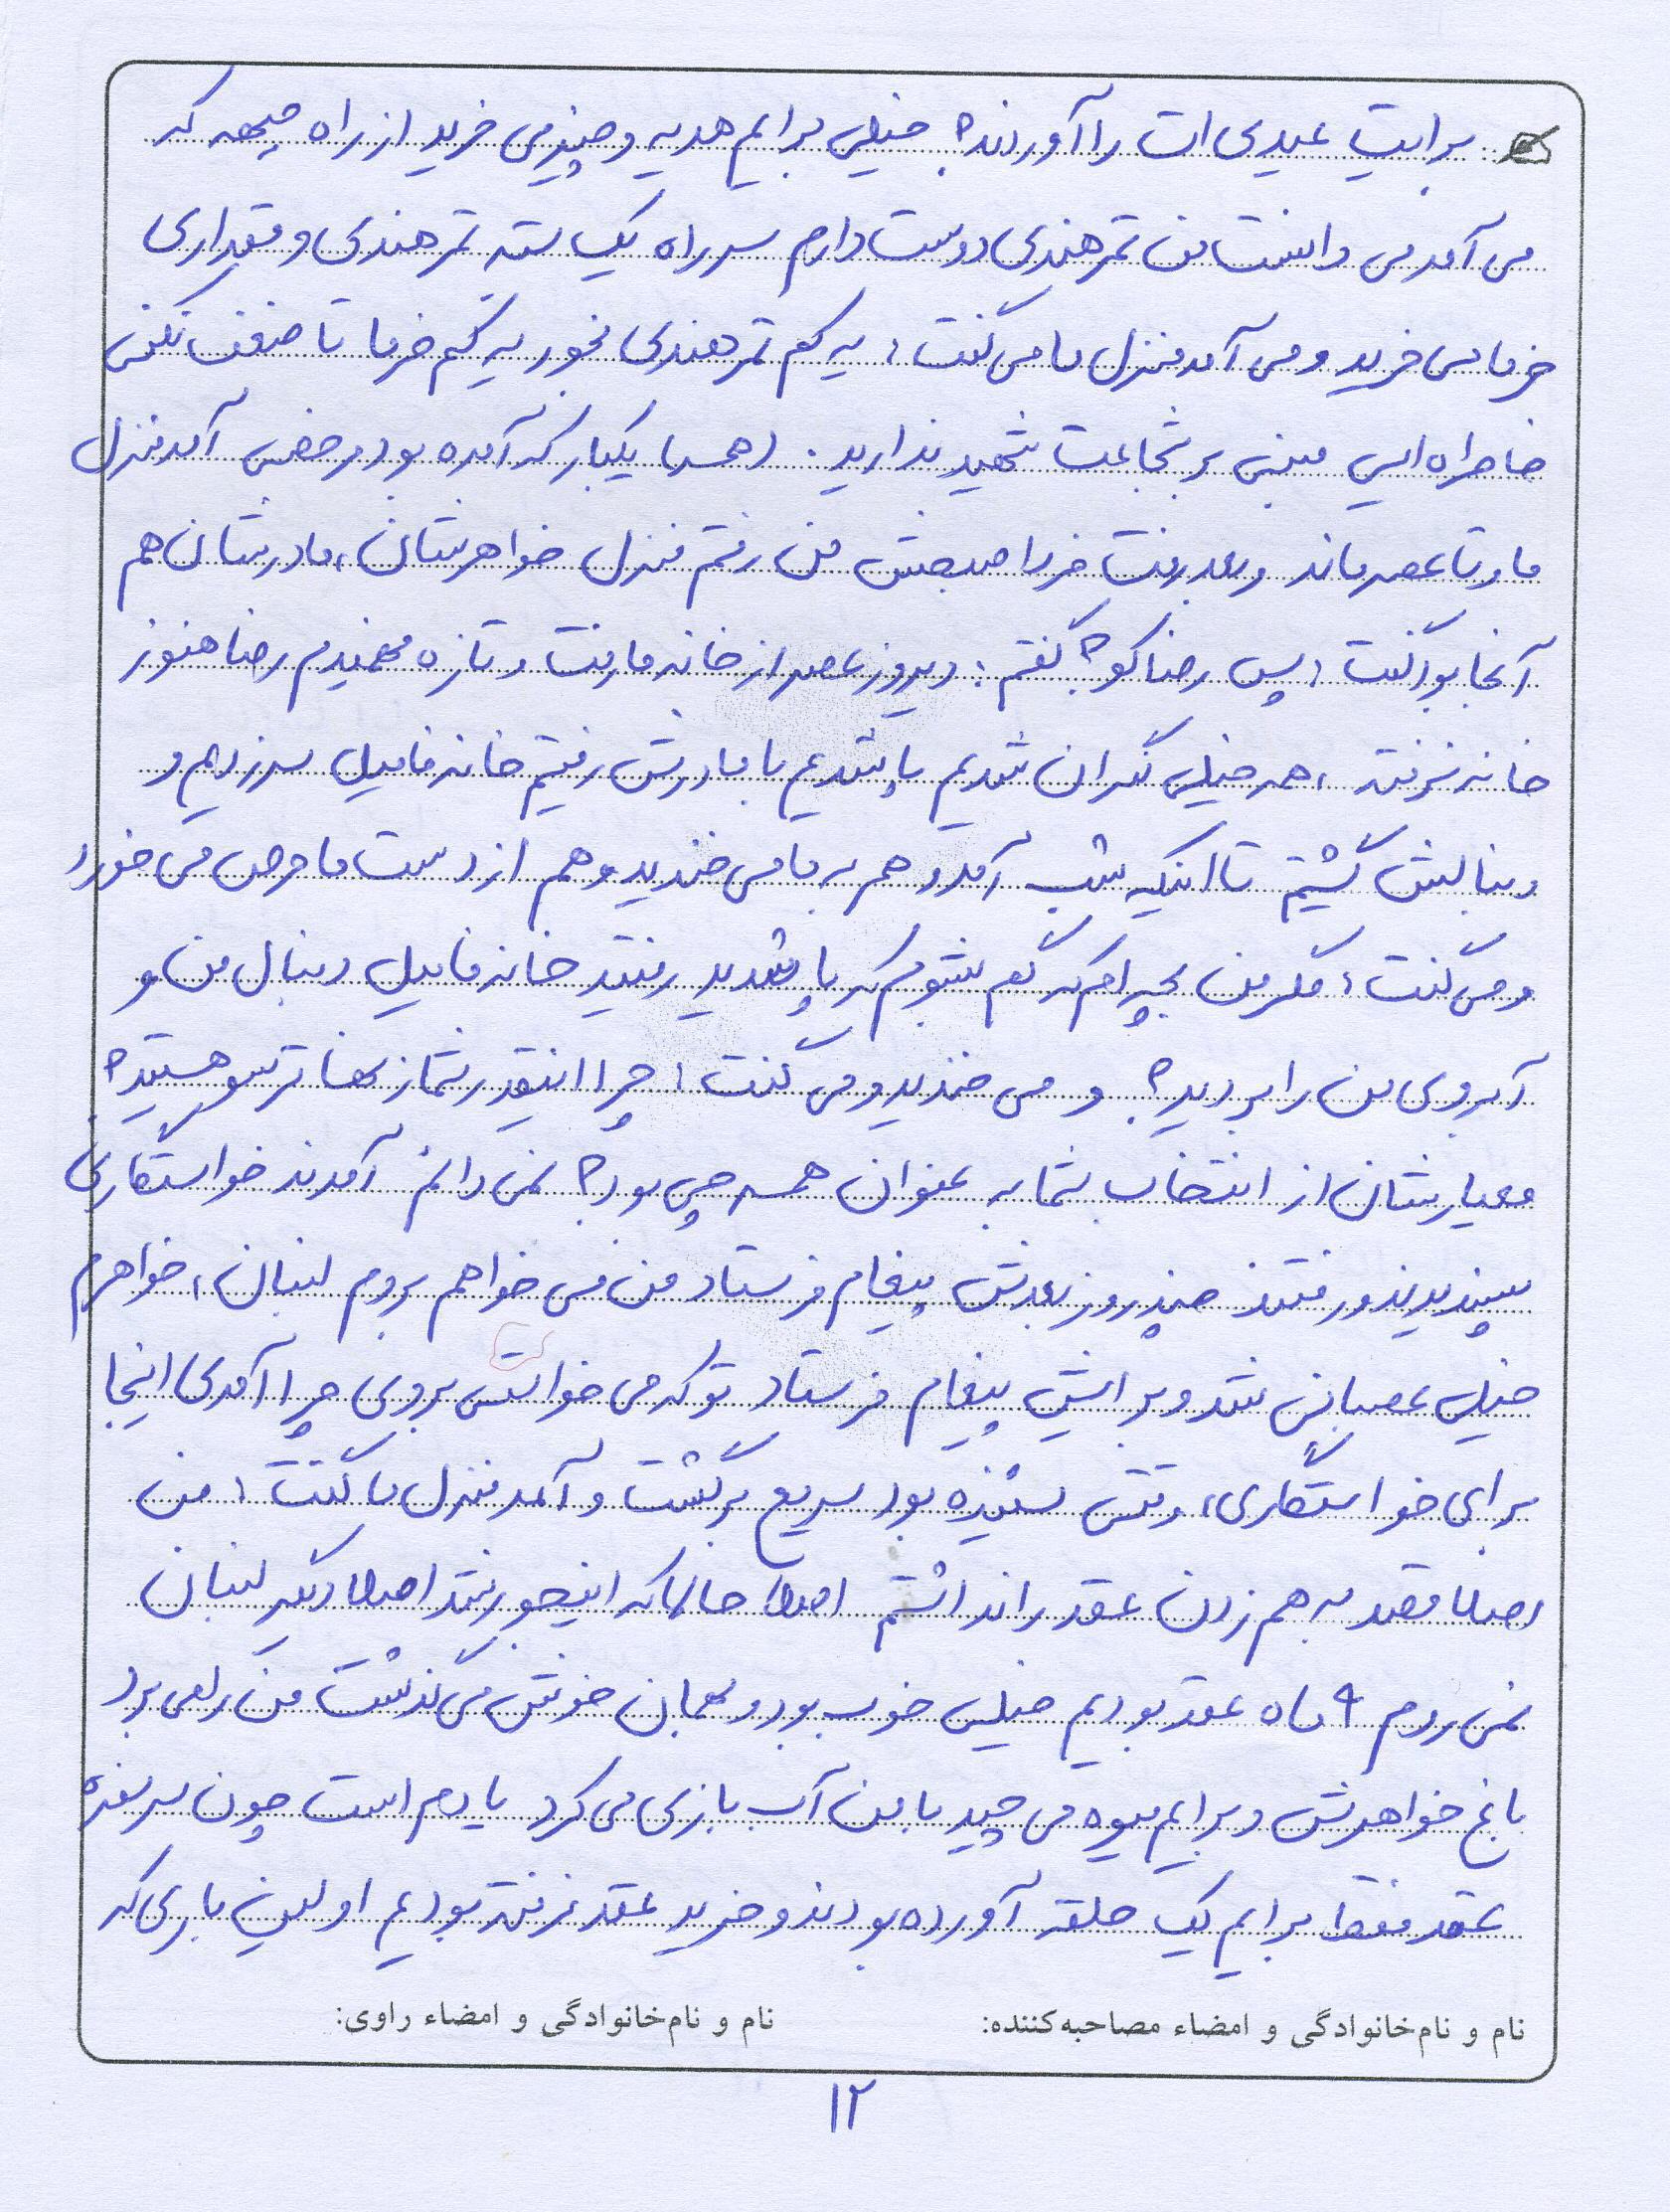 برایت عیدی ات را آوردند؟ خیلی برایم هدیه و چیزی می خرید از راه جبهه که
می آمد می دانست من تمرهندی دوست دارم سر راه یک بسته تمر هندی و مقداری
خرما می خرید و می آمد منزل ما می گفت: یه کم تمرهندی بخور یه کم خرما تا ضعف نکنی
خاطره ایی مبنی بر شجاعت شهید ندارید. (همسر) یکبار که آمده بود مرخصی آمد منزل
ما و تا عصر ماند و بعد رفت فردا صبحش من رفتم منزل خواهرشان، مادرشان هم
آنجا بود گفت: پس رضا کو؟ گفتم: دیروز عصر از خانه ما رفت و تازه فهمیدم رضا هنوز
خانه نرفته، همه خیلی نگران شدیم پا شدیم با مادرش رفتیم خانه فامیل سر زدیم و
دنبالش گشتیم تا اینکه شب آمد و هم به ما می خندید و هم از دست ما حرص می خورد
و می گفت: مگر من بچه ام که گم بشوم که پا شدید رفتید خانه فامیل دنبال من و
آبروی من را بردید؟ و می خندید و می گفت: چرا اینقدر شما زنها ترسو هستید؟
معیارشان از انتخاب شما به عنوان همسر چی بود؟ نمی دانم آمدند خواستگاری
پسندیدند و رفتند چند روز بعدش پیغام فرستاد من می خواهم بروم لبنان، خواهرم
خیلی عصبانی شد و برایش پیغام فرستاد تو که می خواستی بروی چرا آمدی اینجا
برای خواستگاری، وقتی شنیده بود سریع برگشت و آمد منزل ما گفت: من
اصلا قصد به هم زدن عقد را نداشتم اصلا حالا که اینجور شد اصلا دیگر لبنان
نمی روم ۹ ماه عقد بودیم خیلی خوب بود و بهمان خوش می گذشت من را می برد
باغ خواهرش و برایم میوه می چید با من آب بازی می کرد یادم است چون سر سفره
عقد فقط برایم یک حلقه آورده بودند و خرید عقد نرفته بودیم اولین باری که
نام و نام‌خانوادگی و امضاء مصاحبه‌کننده: نام و نام‌خانوادگی و امضاء راوی:
۱۲